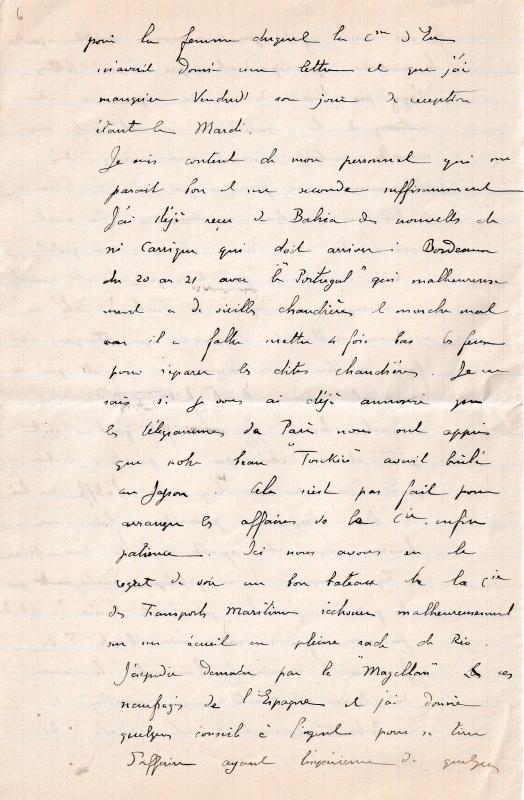 6
pour la femme duquel la Csse d'Eu
m'avait donné une lettre et que j'ai
manquée Vendredi son jour de reception
étant le Mardi.
Je suis content de mon personnel qui me
parait bon et me seconde suffisamment
J'ai déjà reçu de Bahia des nouvelles de
Mr Carrique qui doit arriver à Bordeaux
du 20 au 21 avec le "Portugal" qui malheureuse
ment a de vieilles chaudières et marche mal
il a fallu mettre 4 fois bas les feux
pour réparer les dites chaudières. Je ne
sais si je vous ai déjà annoncé que
les télégrammes de Paris nous ont appris
que notre beau "Tonkin" avait brûlé
au Japon. Cela n'est pas fait pour
arranger les affaires de la Cie. enfin
patience. Ici nous avons eu le
regret de voir un bon bateau de la Cie
des Transports Maritimes échouer malheureusement
sur un écueil en pleine rade de Rio.
J'expédie demain par le "Magellan" les
naufragés de l'Espagne et j'ai donné
quelques conseils à l'agent pour se tirer
d'affaire ayant l'expérience de quelques